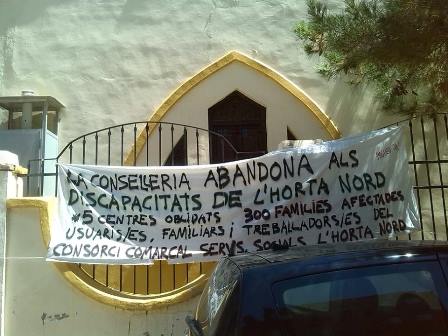 LA CONSELLERIA ABANDONA ALS
DISCAPACITATS DE L'HORTA NORD
*5 CENTRES OBLIGATS 300 FAMILIES AFECTADES
USUARIS/ES, FAMILIARS i TREBALLADORS/ES DEL
CONSORCI COMARCAL SERVS. SOCIALS L'HORTA NORD